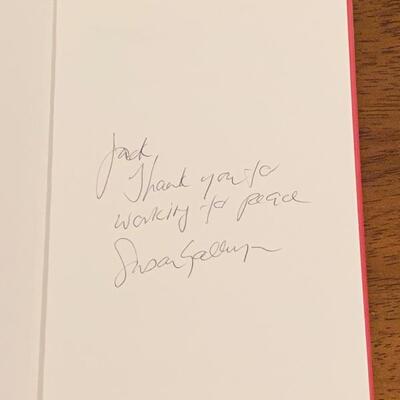 Jack,
Thank you for
working for peace
Susan